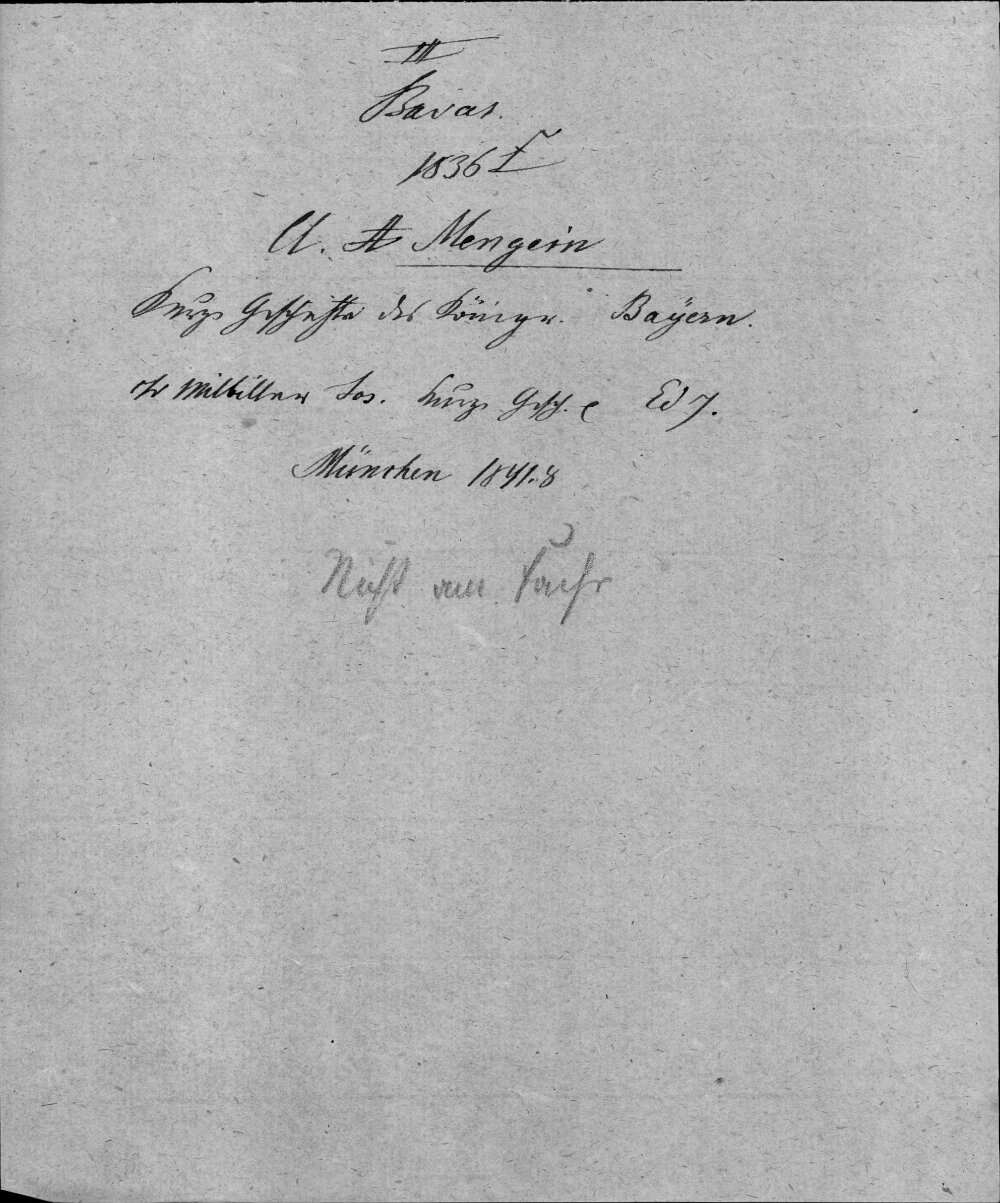 III
Bavar.
1836 f
Cl. A Mengein
Kurze Geschichte des Königr. Bayern.
Milbiller Jos. kurze Gesch. Ed 7.
München 1841. 8
Nicht am Fache